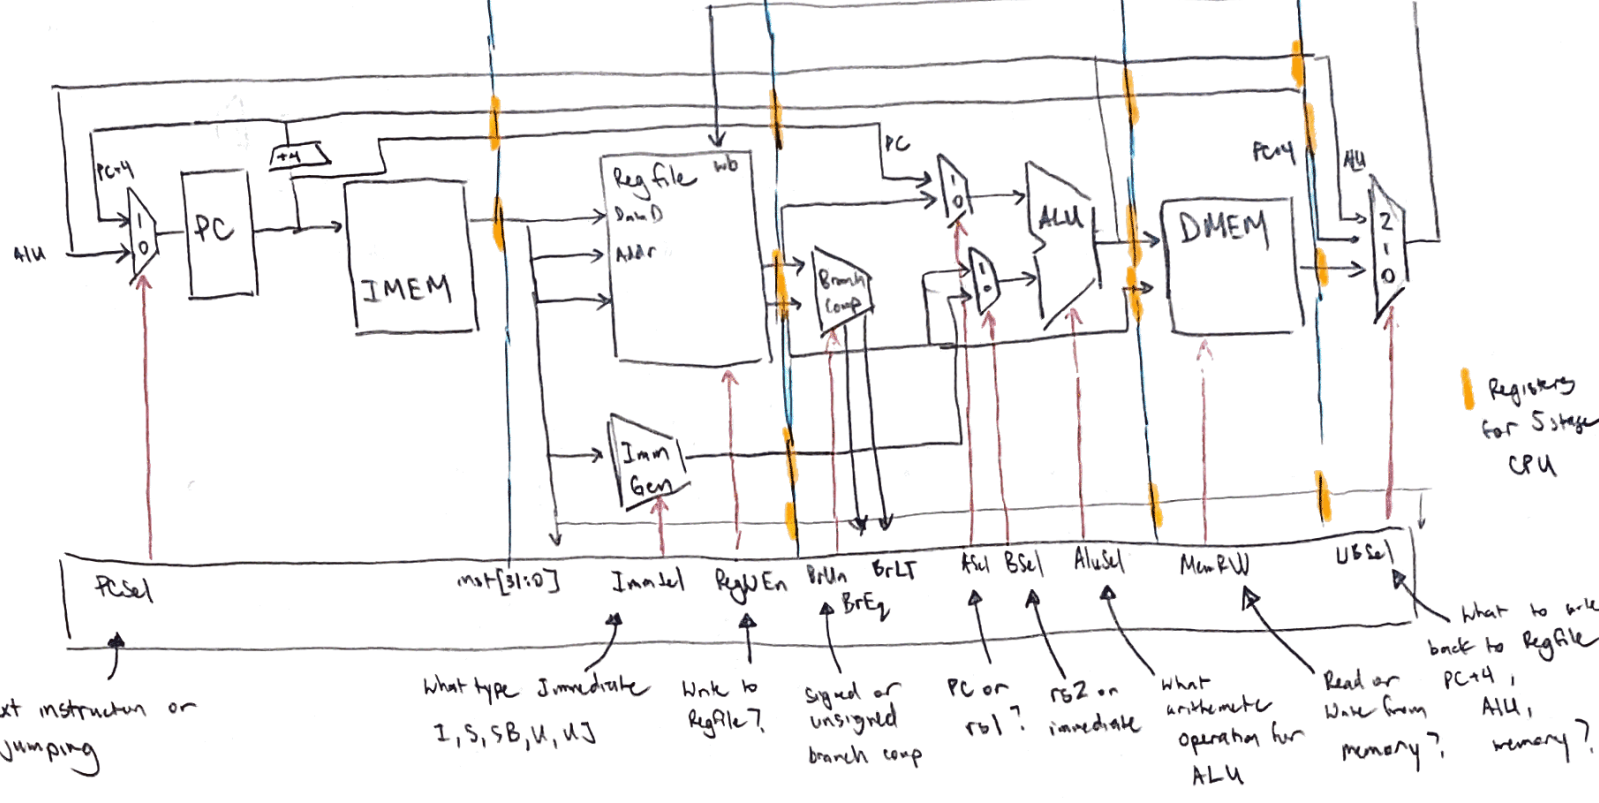 PC+4
ALU
1
0
PC
+4
IMEM
Regfile
wb
DataD
Addr
Imm
Gen
Branch
Comp
PC
1
0
1
0
ALU
DMEM
PC+4
ALU
2
1
0
Registers
for 5 stage
CPU
PCSel
inst[31:0]
ImmSel
RegWEn
BrUn
BrEq
BrLT
ASel
BSel
AluSel
MemRW
WBSel
instruction or
jumping
What type Immediate
I, S, SB, U, UJ
Write to
Regfile?
Signed or
unsigned
branch comp
PC or
rs1?
rs2 or
immediate
What
arithmetic
operation for
ALU
Read or
Write from
memory?
What to write
back to Regfile
PC+4,
ALU,
memory?